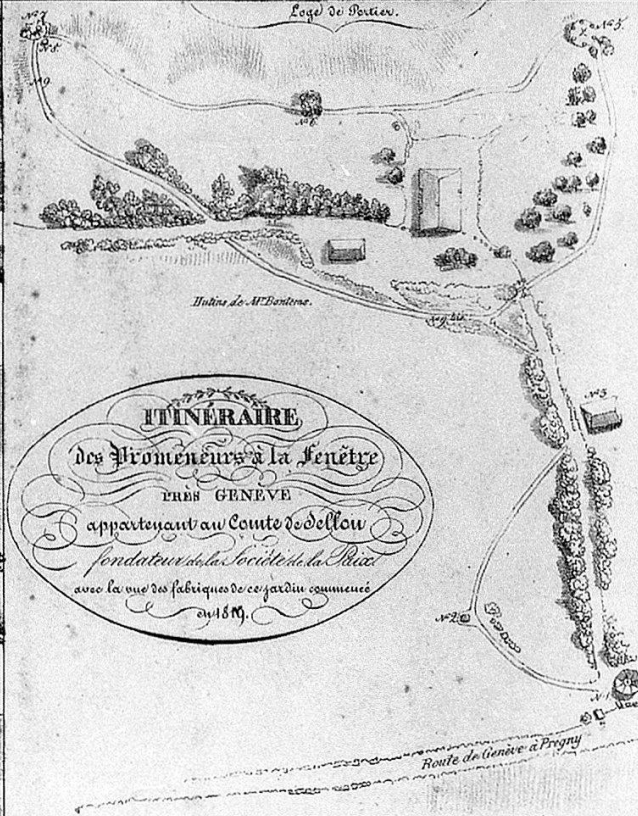 Loge de Portier.
N° 7.
N° 5.
N° 9.
N° 6.
Hutins de Mr. Bontems.
N° 9 bis.
N° 3
ITINÉRAIRE
des Promeneurs à la Fenêtre
PRÈS GENÈVE
appartenant au Comte de Sellon
fondateur de la Société de la Paix
avec la vue des fabriques de ce jardin commencé
en 1819.
N° 2
N° 1
Route de Genève à Pregny